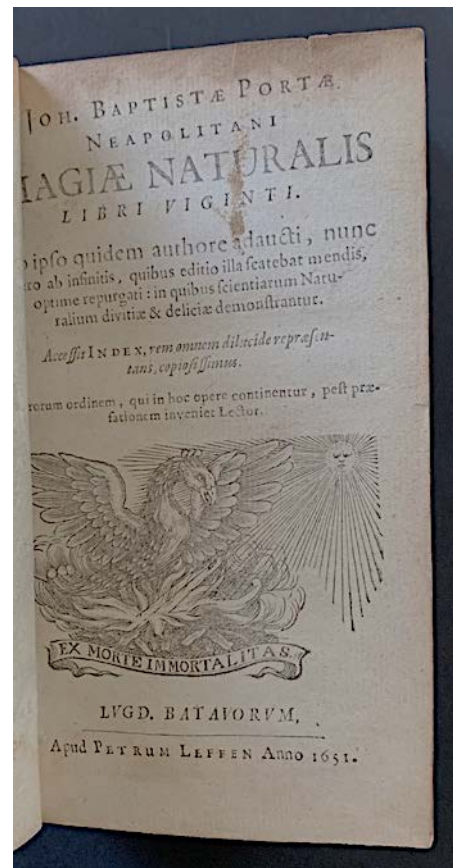 JOH. BAPTISTÆ PORTÆ
NEAPOLITANI
MAGIÆ NATURALIS
LIBRI VIGINTI.
ipso quidem authore adaucti, nunc
ab infinitis, quibus editio illa ſcatebat mendis,
optime repurgati: in quibus ſcientiarum Natu-
ralium divitiæ & deliciæ demonſtrantur.
Acceſſit INDEX, rem omnem dilucide repræſen-
tans, copioſiſſimus.
ordinem, qui in hoc opere continentur, poſt præ-
fationem inveniet Lector.
EX MORTE IMMORTALITAS.
LVGD. BATAVORVM,
Apud PETRUM LEFFEN Anno 1651.